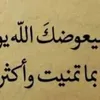 سيعوضكَ اللّه
بما تمنيت وأكثر